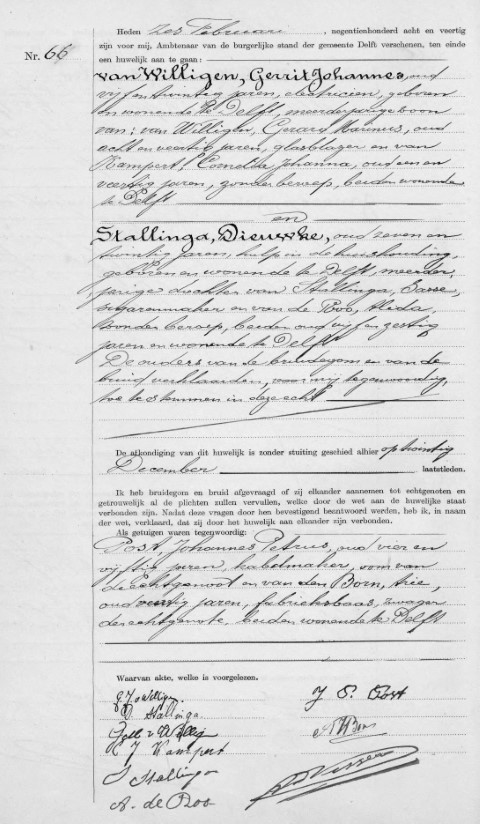 Nr. 66
Heden zes Februari, negentienhonderd acht en veertig
zijn voor mij, Ambtenaar van de burgerlijke stand der gemeente Delft verschenen, ten einde
een huwelijk aan te gaan:
van Willigen, Gerrit Johannes, oud
vijf en twintig jaren, electricien, geboren
en wonende te Delft, meerderjarige zoon
van: van Willigen, Gerard Marinus, oud
acht en veertig jaren, glasblazer en van
Kampert, Cornelia Johanna, oud een en
veertig jaren, zonder beroep, beiden wonende
te Delft
en
Stallinga, Dieuwke, oud zeven en
twintig jaren, hulp in de huishouding,
geboren en wonende te Delft, meerder-
jarige dochter van Stallinga, Sasse,
sigarenmaker en van de Boo, Alida,
zonder beroep, beiden oud vijf en zestig
jaren en wonende te Delft
De ouders van de bruidegom en van de
bruid verklaarden, voor mij tegenwoordig,
toe te stemmen in deze echt
De afkondiging van dit huwelijk is zonder stuiting geschied alhier op twintig
December laatstleden.
Ik heb bruidegom en bruid afgevraagd of zij elkander aannemen tot echtgenoten en
getrouwelijk al de plichten zullen vervullen, welke door de wet aan de huwelijke staat
verbonden zijn. Nadat deze vragen door hen bevestigend beantwoord werden, heb ik, in naam
der wet, verklaard, dat zij door het huwelijk aan elkander zijn verbonden.
Als getuigen waren tegenwoordig:
Post, Johannes Petrus, oud vier en
vijftig jaren, kabelmaker, oom van
de echtgenoot en van den Born, Arie,
oud veertig jaren, fabrieksbaas, zwager
der echtgenote, beiden wonende te Delft
Waarvan akte, welke is voorgelezen.
G J v Willigen
J P Post
D. Stallinga
C J Kampert
S Stallinga
A. de Boo